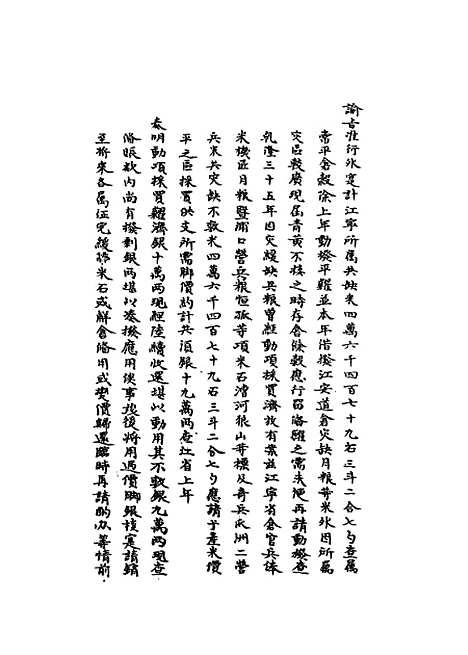 諭旨准行外寔計江寧所屬共缺米四萬六千四百七十九石三斗二合七勺查屬
常平倉穀除上年動撥平糶並本年借撥江安道倉灾缺月糧等米外因所屬
灾區較廣現届青黄不接之時存倉餘穀應行留備糶之需未便再請動撥查
乾隆三十五年因灾緩缺兵糧曾經動項採買濟放有案茲江寧省倉官兵俸
米機匠月糧暨浦口營兵糧恤孤等項米石漕河狼山等標及奇兵瓜洲二營
兵米共灾缺不敷米四萬六千四百七十九石三斗二合七勺應請于產米價
平之區採買供支所需脚價約計共須銀十九萬兩查江省上年
奏明動項採買糶濟銀十萬兩現經陸續收還堪以動用其不敷銀九萬兩現查
備賑欵内尚有撥剩銀兩堪以湊撥應用俟事竣後將用過價脚銀核寔請銷
至將來各屬征完緩帶米石或觧倉備用或賣價歸還臨時再請酌办等情前